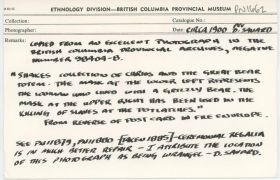 ETHNOLOGY DIVISION—BRITISH COLUMBIA PROVINCIAL MUSEUM PN11662
Collection:
Catalogue No.:
Photographer:
Date: CIRCA 1900 D. SAVARD
Remarks:
COPIED FROM AN EXCELLENT PHOTOGRAPH IN THE
BRITISH COLUMBIA PROVINCIAL ARCHIVES, NEGATIVE
NUMBER 98404-B.
"SHAKES COLLECTION OF CURIOS AND THE GREAT BEAR
TOTEM. THE MASK AT THE LOWER LEFT REPRESENTS
THE WOMAN WHO LIVED WITH A GRIZZLY BEAR. THE
MASK AT THE UPPER RIGHT HAS BEEN USED IN THE
KILLING OF SLAVES AT THE POTLATCHES."
FROM REVERSE OF POST-CARD IN FILE ENVELOPE.
SEE PN11879, PN11880 [TAKEN 1885] - CEREMONIAL REGALIA
IS IN MUCH BETTER REPAIR - I ATTRIBUTE THE LOCATION
OF THIS PHOTOGRAPH AS BEING WRANGELL - D. SAVARD.